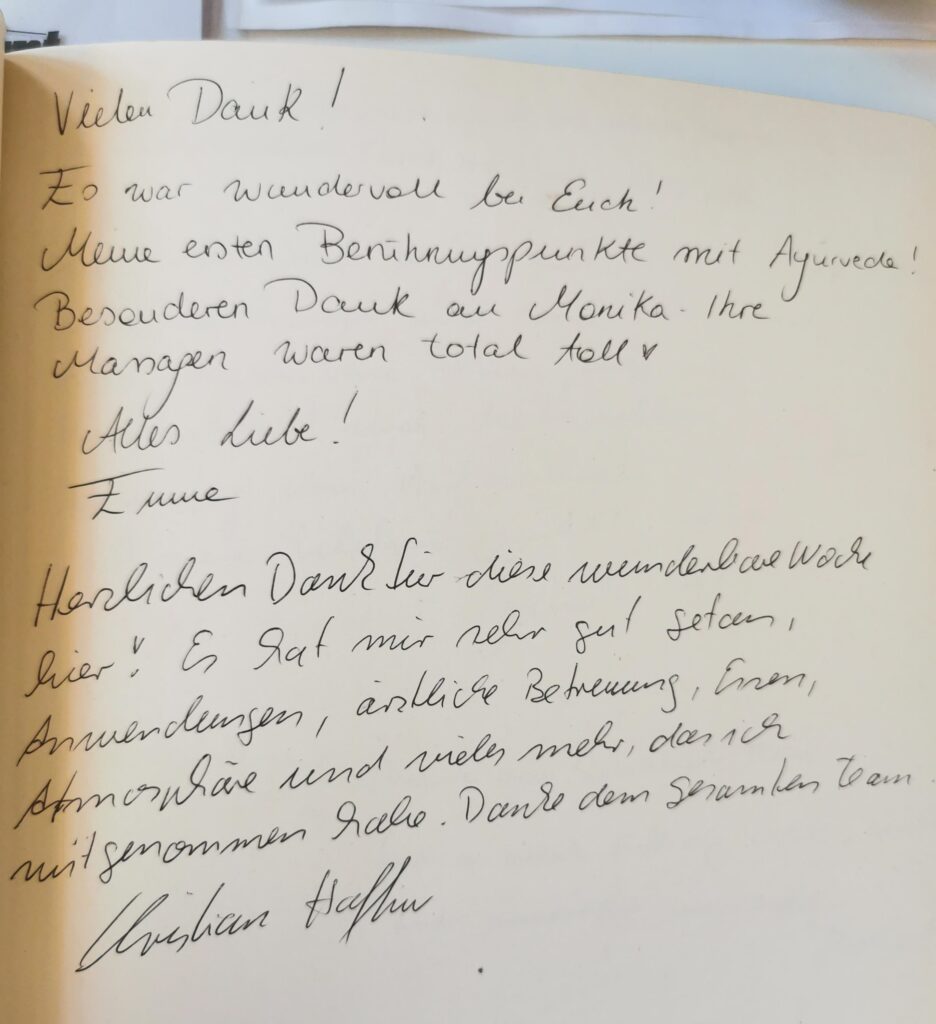 Vielen Dank!
Es war wundervoll bei Euch!
Meine ersten Berührungspunkte mit Ayurveda!
Besonderen Dank an Monika. Ihre
Massagen waren total toll ♥
Alles Liebe!
Emme
Herzlichen Dank für diese wunderbare Woche
hier! Es hat mir sehr gut getan,
Anwendungen, ärztliche Betreuung, Essen,
Atmosphäre und vieles mehr, das ich
mitgenommen habe. Danke dem gesamten Team
Christian